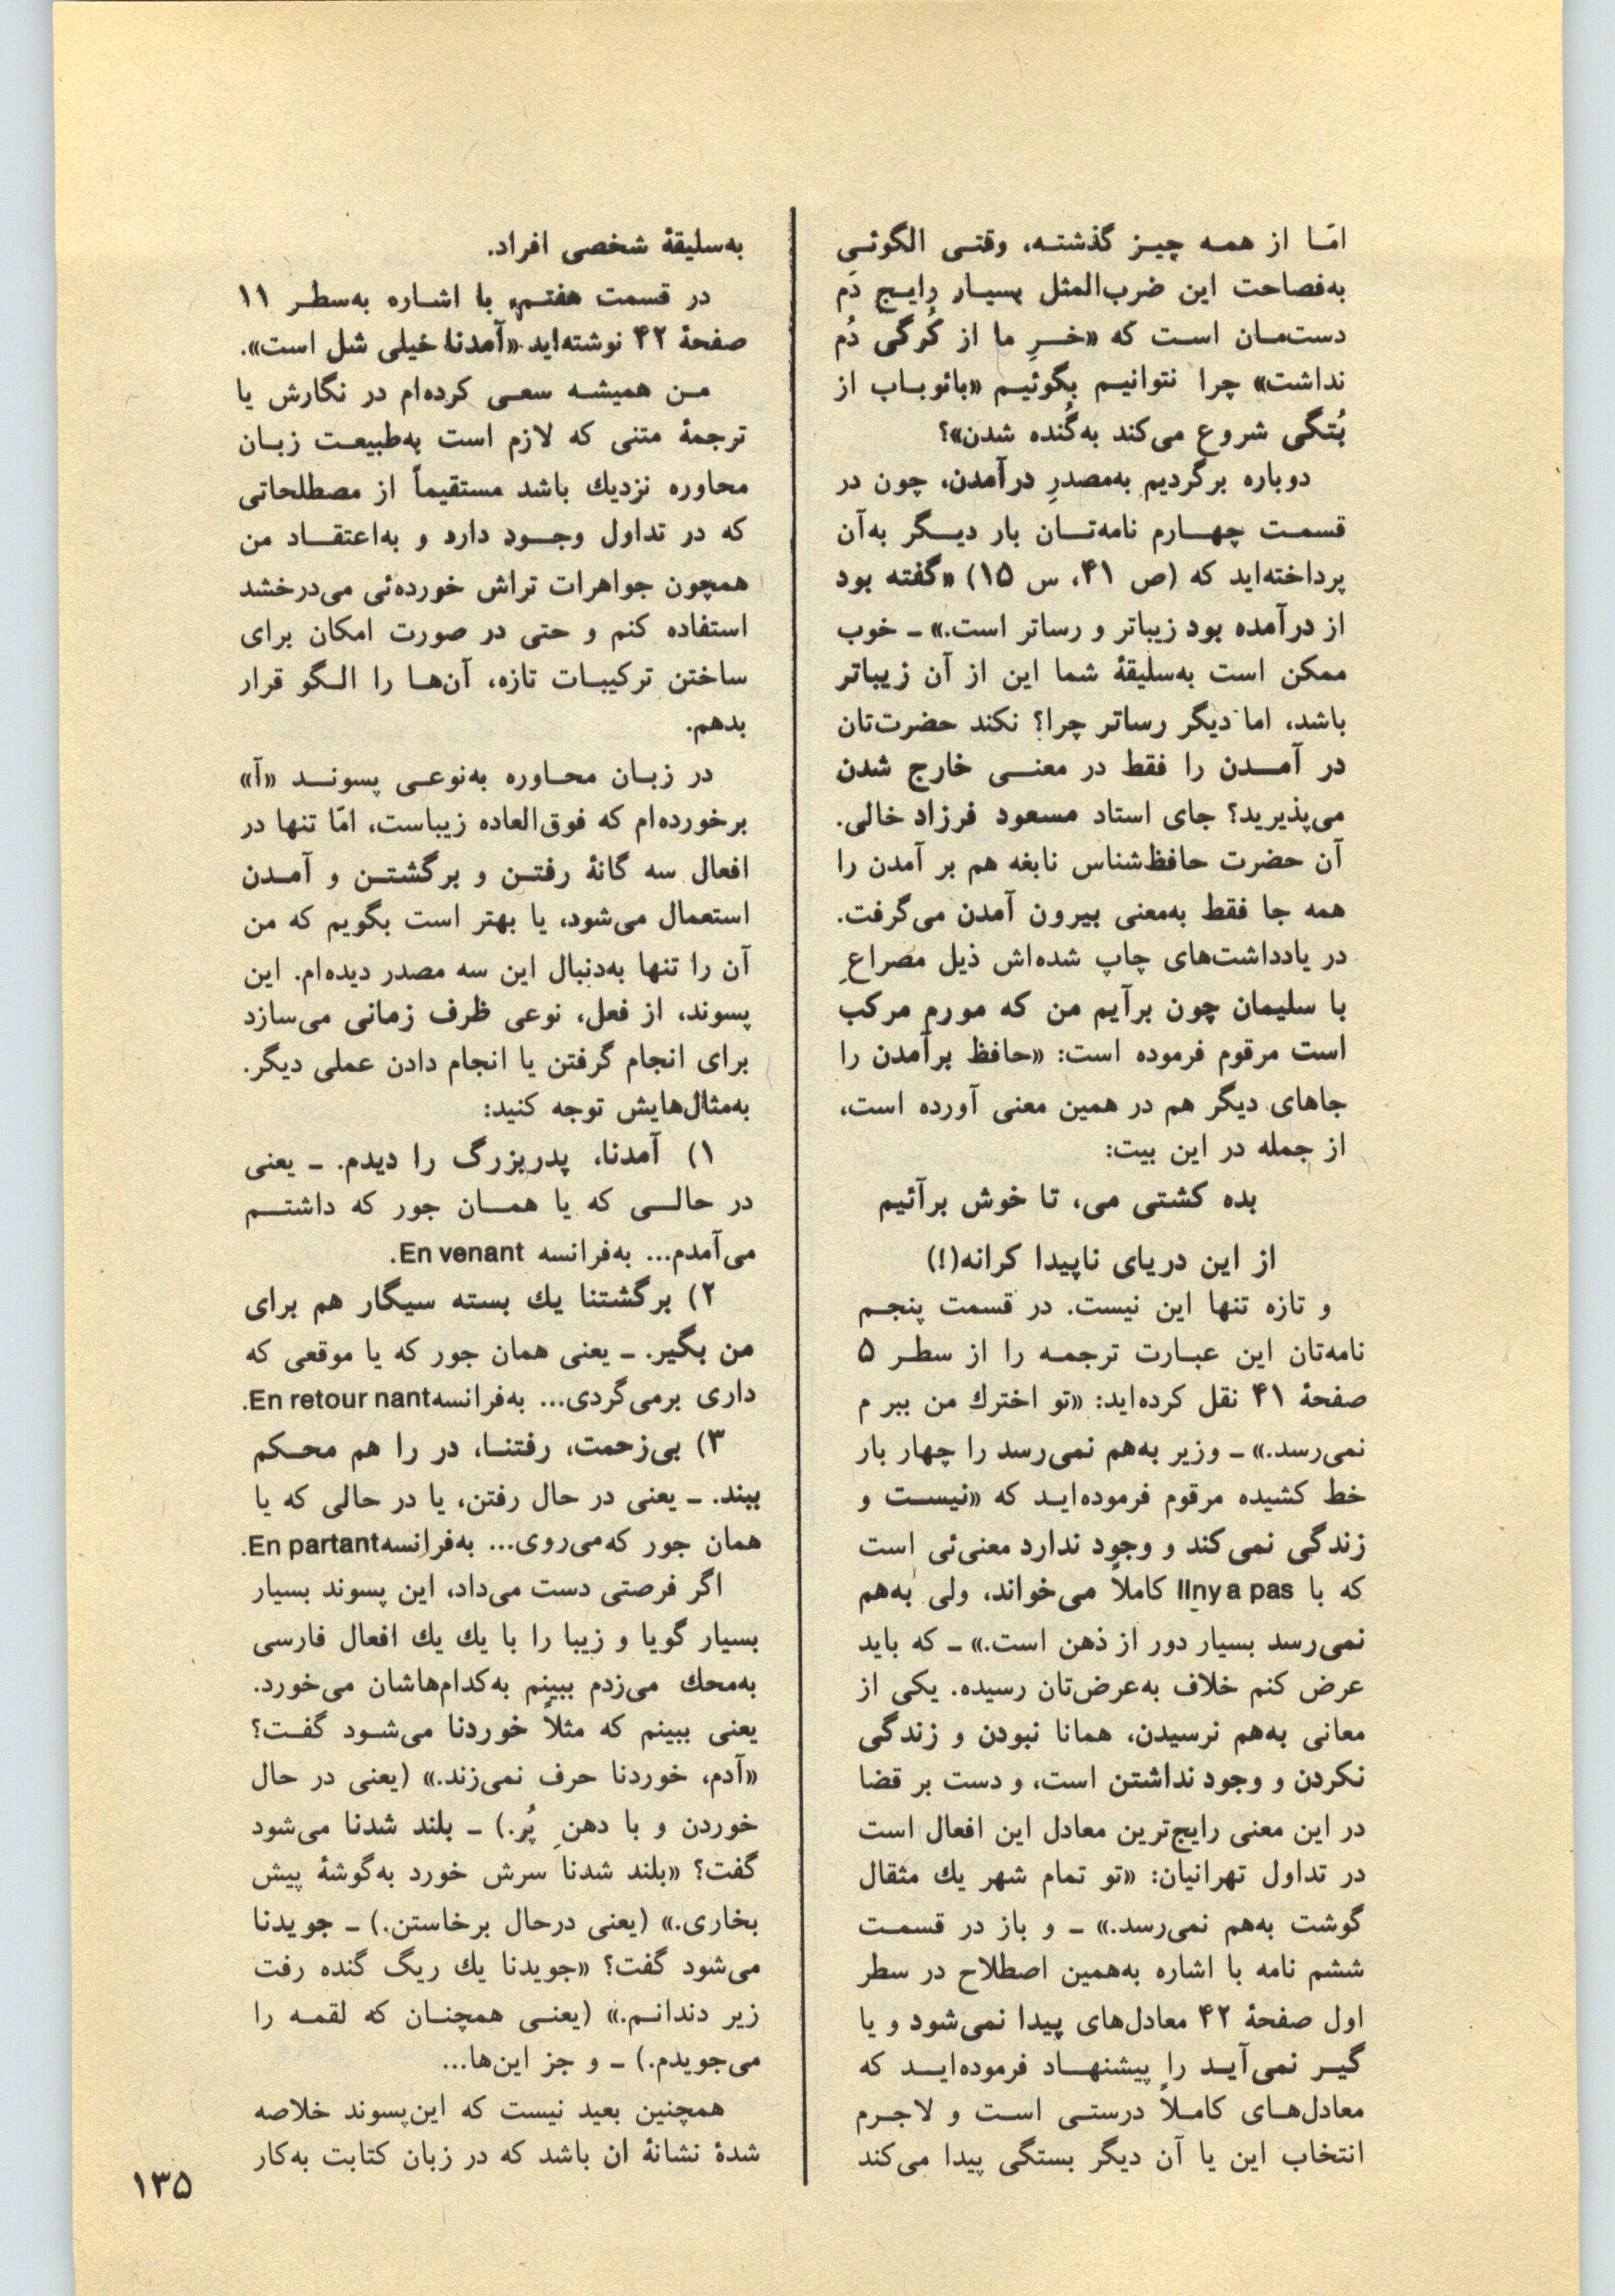 امّا از همه چیز گذشته، وقتی الگوئی
به‌فصاحت این ضرب‌المثل بسیار رایج دَم
دست‌مان است که «خرِ ما از کُرگی دُم
نداشت» چرا نتوانیم بگوئیم «بائوباب از
بُتگی شروع می‌کند به‌گُنده شدن»؟
دوباره برگردیم به‌مصدرِ درآمدن، چون در
قسمت چهارم نامه‌تان بار دیگر به‌آن
پرداخته‌اید که (ص ۴۱، س ۱۵) «گفته بود
از درآمده بود زیباتر و رساتر است.» ـ خوب
ممکن است به‌سلیقهٔ شما این از آن زیباتر
باشد، اما دیگر رساتر چرا؟ نکند حضرت‌تان
در آمدن را فقط در معنی خارج شدن
می‌پذیرید؟ جای استاد مسعود فرزاد خالی.
آن حضرت حافظ‌شناس نابغه هم بر آمدن را
همه جا فقط به‌معنی بیرون آمدن می‌گرفت.
در یادداشت‌های چاپ شده‌اش ذیل مصراعِ
با سلیمان چون برآیم من که مورم مرکب
است مرقوم فرموده است: «حافظ برآمدن را
جاهای دیگر هم در همین معنی آورده است،
از جمله در این بیت:
بده کشتی می، تا خوش برآئیم
از این دریای ناپیدا کرانه(!)
و تازه تنها این نیست. در قسمت پنجم
نامه‌تان این عبارت ترجمه را از سطر ۵
صفحهٔ ۴۱ نقل کرده‌اید: «تو اخترك من ببر م
نمی‌رسد.» ـ وزیر به‌هم نمی‌رسد را چهار بار
خط کشیده مرقوم فرموده‌اید که «نیست و
زندگی نمی‌کند و وجود ندارد معنی‌ئی است
که با Ilny a pas کاملاً می‌خواند، ولی به‌هم
نمی‌رسد بسیار دور از ذهن است.» ـ که باید
عرض کنم خلاف به‌عرض‌تان رسیده. یکی از
معانی به‌هم نرسیدن، همانا نبودن و زندگی
نکردن و وجود نداشتن است، و دست بر قضا
در این معنی رایج‌ترین معادل این افعال است
در تداول تهرانیان: «تو تمام شهر یك مثقال
گوشت به‌هم نمی‌رسد.» ـ و باز در قسمت
ششم نامه با اشاره به‌همین اصطلاح در سطر
اول صفحهٔ ۴۲ معادل‌های پیدا نمی‌شود و یا
گیر نمی‌آید را پیشنهاد فرموده‌اید که
معادل‌های کاملاً درستی است و لاجرم
انتخاب این یا آن دیگر بستگی پیدا می‌کند
به‌سلیقهٔ شخصی افراد.
در قسمت هفتم، با اشاره به‌سطر ۱۱
صفحهٔ ۴۲ نوشته‌اید «آمدنا خیلی شل است».
من همیشه سعی کرده‌ام در نگارش یا
ترجمهٔ متنی که لازم است به‌طبیعت زبان
محاوره نزدیك باشد مستقیماً از مصطلحاتی
که در تداول وجود دارد و به‌اعتقاد من
همچون جواهرات تراش خورده‌ئی می‌درخشد
استفاده کنم و حتی در صورت امکان برای
ساختن ترکیبات تازه، آن‌ها را الگو قرار
بدهم.
در زبان محاوره به‌نوعی پسوند «آ»
برخورده‌ام که فوق‌العاده زیباست، امّا تنها در
افعال سه گانهٔ رفتن و برگشتن و آمدن
استعمال می‌شود، یا بهتر است بگویم که من
آن را تنها به‌دنبال این سه مصدر دیده‌ام. این
پسوند، از فعل، نوعی ظرف زمانی می‌سازد
برای انجام گرفتن یا انجام دادن عملی دیگر.
به‌مثال‌هایش توجه کنید:
۱) آمدنا، پدربزرگ را دیدم. ـ یعنی
در حالی که یا همان جور که داشتم
می‌آمدم... به‌فرانسه En venant.
۲) برگشتنا یك بسته سیگار هم برای
من بگیر. ـ یعنی همان جور که یا موقعی که
داری برمی‌گردی... به‌فرانسه En retour nant.
۳) بی‌زحمت، رفتنا، در را هم محکم
ببند. ـ یعنی در حال رفتن، یا در حالی که یا
همان جور که می‌روی... به‌فرانسه En partant.
اگر فرصتی دست می‌داد، این پسوند بسیار
بسیار گویا و زیبا را با یك یك افعال فارسی
به‌محك می‌زدم ببینم به‌کدام‌هاشان می‌خورد.
یعنی ببینم که مثلاً خوردنا می‌شود گفت؟
«آدم، خوردنا حرف نمی‌زند.» (یعنی در حال
خوردن و با دهنِ پُر.) ـ بلند شدنا می‌شود
گفت؟ «بلند شدنا سرش خورد به‌گوشهٔ پیش
بخاری.» (یعنی درحال برخاستن.) ـ جویدنا
می‌شود گفت؟ «جویدنا یك ریگ گنده رفت
زیر دندانم.» (یعنی همچنان که لقمه را
می‌جویدم.) ـ و جز این‌ها...
همچنین بعید نیست که این‌پسوند خلاصه
شدهٔ نشانهٔ ان باشد که در زبان کتابت به‌کار
۱۳۵